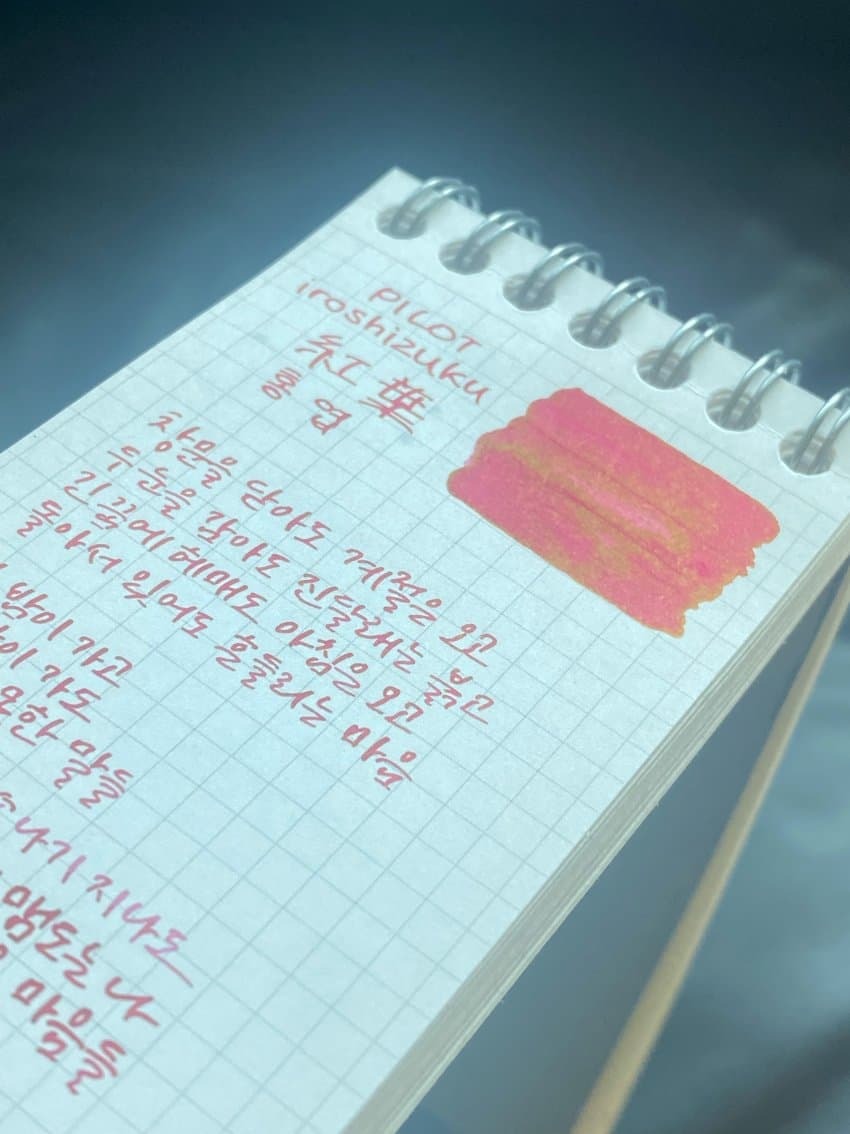 PILOT
iroshizuku
紅葉
홍엽
창문을 닫아도 계절은 오고
두 눈을 감아도 진달래는 붉고
긴긴 꿈에 헤매도 아침은 오고
돌아서 흔들리는 마음
가고
가도
말들
지나도
맴도는 나